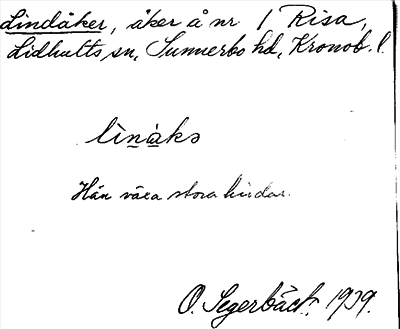 Lindåker, åker å nr 1 Risa,
Lidhults sn, Sunnerbo hd, Kronob. l.
lìnàks
Här växa stora lindar.
O. Segerbäck. 1929.